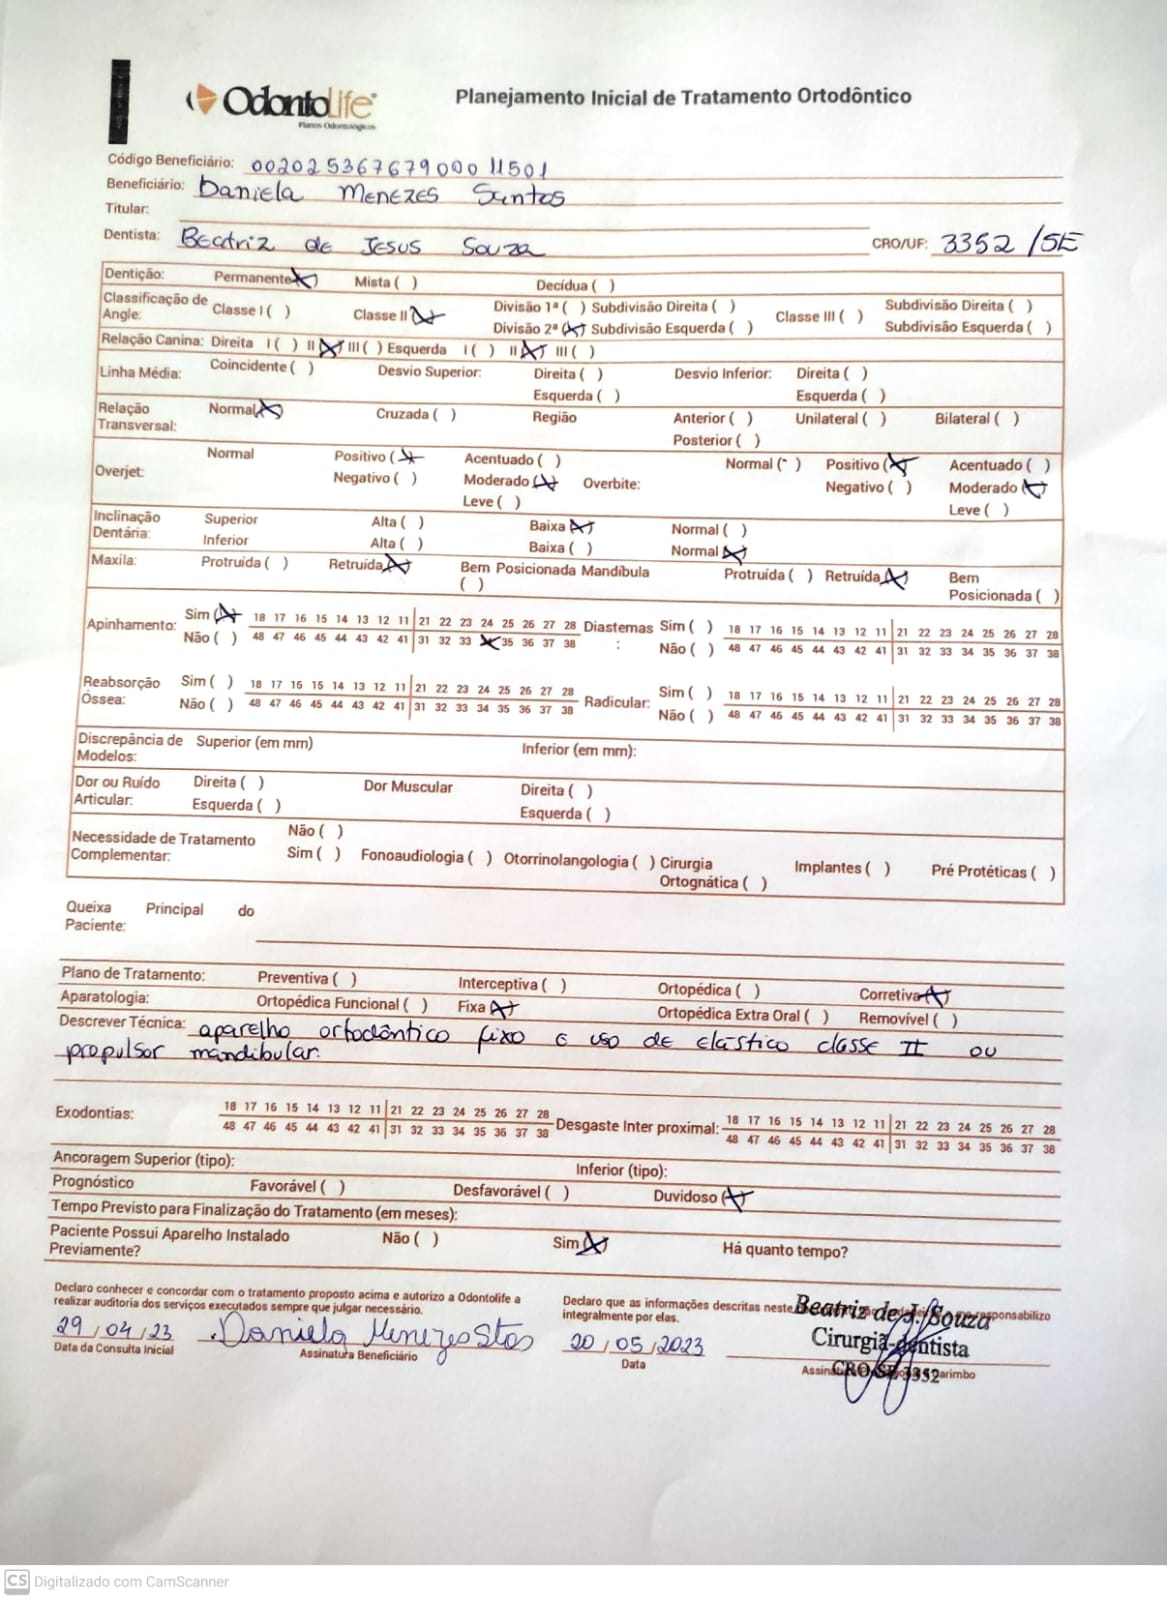 OdontoLife
Planos Odontológicos
Planejamento Inicial de Tratamento Ortodôntico
Código Beneficiário: 00202536767900011501
Beneficiário: Daniela Menezes Santos
Titular:
Dentista: Beatriz de Jesus Souza CRO/UF: 3352 /SE
Dentição: Permanente(X) Mista ( ) Decídua ( )
Classificação de Angle: Classe I ( ) Classe II (X) Divisão 1ª ( ) Subdivisão Direita ( ) Classe III ( ) Subdivisão Direita ( )
Divisão 2ª (X) Subdivisão Esquerda ( ) Subdivisão Esquerda ( )
Relação Canina: Direita I ( ) II (X) III ( ) Esquerda I ( ) II (X) III ( )
Linha Média: Coincidente ( ) Desvio Superior: Direita ( ) Desvio Inferior: Direita ( )
Esquerda ( ) Esquerda ( )
Relação Transversal: Normal (X) Cruzada ( ) Região Anterior ( ) Unilateral ( ) Bilateral ( )
Posterior ( )
Overjet: Normal Positivo (X) Acentuado ( ) Overbite: Normal ( ) Positivo (X) Acentuado ( )
Negativo ( ) Moderado (X) Negativo ( ) Moderado (X)
Leve ( ) Leve ( )
Inclinação Dentária: Superior Alta ( ) Baixa (X) Normal ( )
Inferior Alta ( ) Baixa ( ) Normal (X)
Maxila: Protruída ( ) Retruída (X) Bem Posicionada ( ) Mandíbula Protruída ( ) Retruída (X) Bem Posicionada ( )
Apinhamento: Sim (X) 18 17 16 15 14 13 12 11 21 22 23 24 25 26 27 28 Diastemas: Sim ( ) 18 17 16 15 14 13 12 11 21 22 23 24 25 26 27 28
Não ( ) 48 47 46 45 44 43 42 41 31 32 33 X 35 36 37 38 Não ( ) 48 47 46 45 44 43 42 41 31 32 33 34 35 36 37 38
Reabsorção Óssea: Sim ( ) 18 17 16 15 14 13 12 11 21 22 23 24 25 26 27 28 Radicular: Sim ( ) 18 17 16 15 14 13 12 11 21 22 23 24 25 26 27 28
Não ( ) 48 47 46 45 44 43 42 41 31 32 33 34 35 36 37 38 Não ( ) 48 47 46 45 44 43 42 41 31 32 33 34 35 36 37 38
Discrepância de Modelos: Superior (em mm) Inferior (em mm):
Dor ou Ruído Articular: Direita ( ) Dor Muscular Direita ( )
Esquerda ( ) Esquerda ( )
Necessidade de Tratamento Complementar: Não ( )
Sim ( ) Fonoaudiologia ( ) Otorrinolangologia ( ) Cirurgia Ortognática ( ) Implantes ( ) Pré Protéticas ( )
Queixa Principal do Paciente:
Plano de Tratamento: Preventiva ( ) Interceptiva ( ) Ortopédica ( ) Corretiva (X)
Aparatologia: Ortopédica Funcional ( ) Fixa (X) Ortopédica Extra Oral ( ) Removível ( )
Descrever Técnica: aparelho ortodôntico fixo e uso de elástico classe II ou
propulsor mandibular.
Exodontias: 18 17 16 15 14 13 12 11 21 22 23 24 25 26 27 28 Desgaste Inter proximal: 18 17 16 15 14 13 12 11 21 22 23 24 25 26 27 28
48 47 46 45 44 43 42 41 31 32 33 34 35 36 37 38 48 47 46 45 44 43 42 41 31 32 33 34 35 36 37 38
Ancoragem Superior (tipo): Inferior (tipo):
Prognóstico Favorável ( ) Desfavorável ( ) Duvidoso (X)
Tempo Previsto para Finalização do Tratamento (em meses):
Paciente Possui Aparelho Instalado Previamente? Não ( ) Sim (X) Há quanto tempo?
Declaro conhecer e concordar com o tratamento proposto acima e autorizo a Odontolife a
realizar auditoria dos serviços executados sempre que julgar necessário.
29/04/23 Daniela Menezes Stos
Data da Consulta Inicial Assinatura Beneficiário
Declaro que as informações descritas neste responsabilizo
integralmente por elas.
20/05/2023
Data
Beatriz de J. Souza
Cirurgiã-dentista
CRO-SE 3352
CS Digitalizado com CamScanner